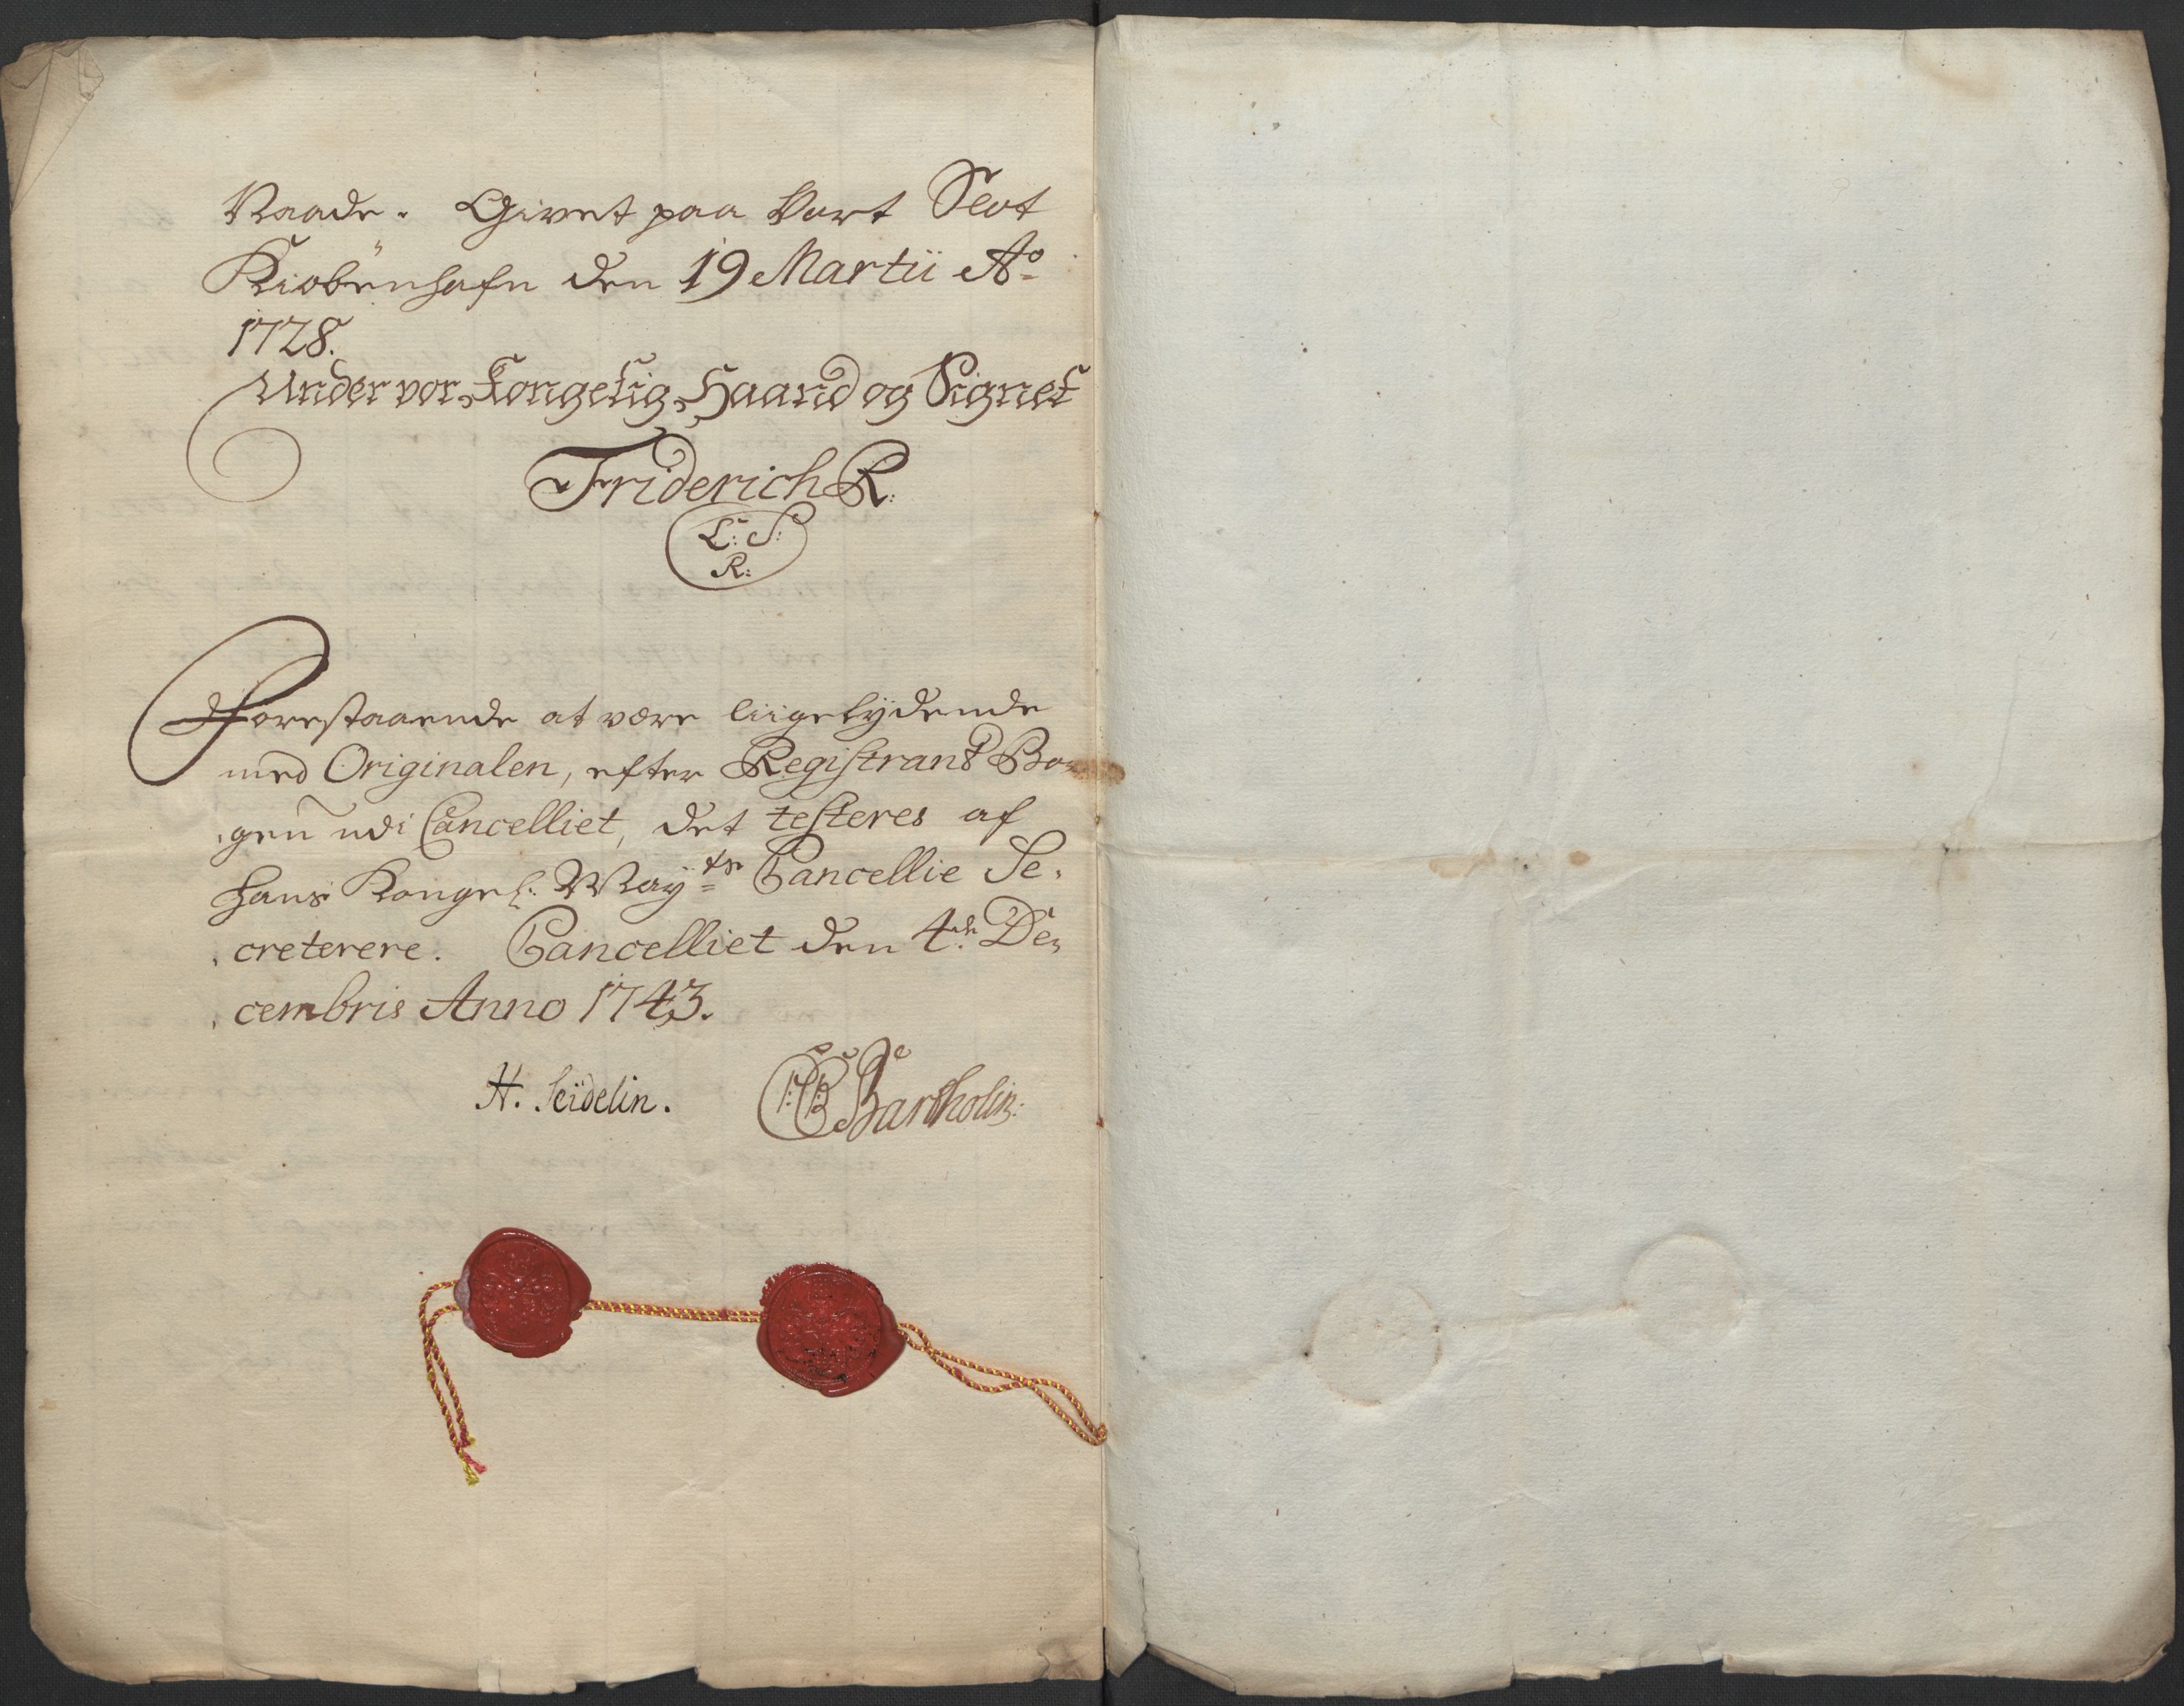 Naade. Givet paa Vort Slot
Kiøbenhafn den 19 Martii Ao
1728.
Under vor Kongelig Haand og Signet
Friderich R:
L: S:
R:
Forestaaende at være liigelydende
med Originalen, efter Registrant Bo-
gen udi Cancelliet, det testeres af
Hans Kongel: May:ts Cancellie Se-
creterere. Cancelliet den 4de De-
cembris Anno 1743.
H. Seidelin. Bartholin: